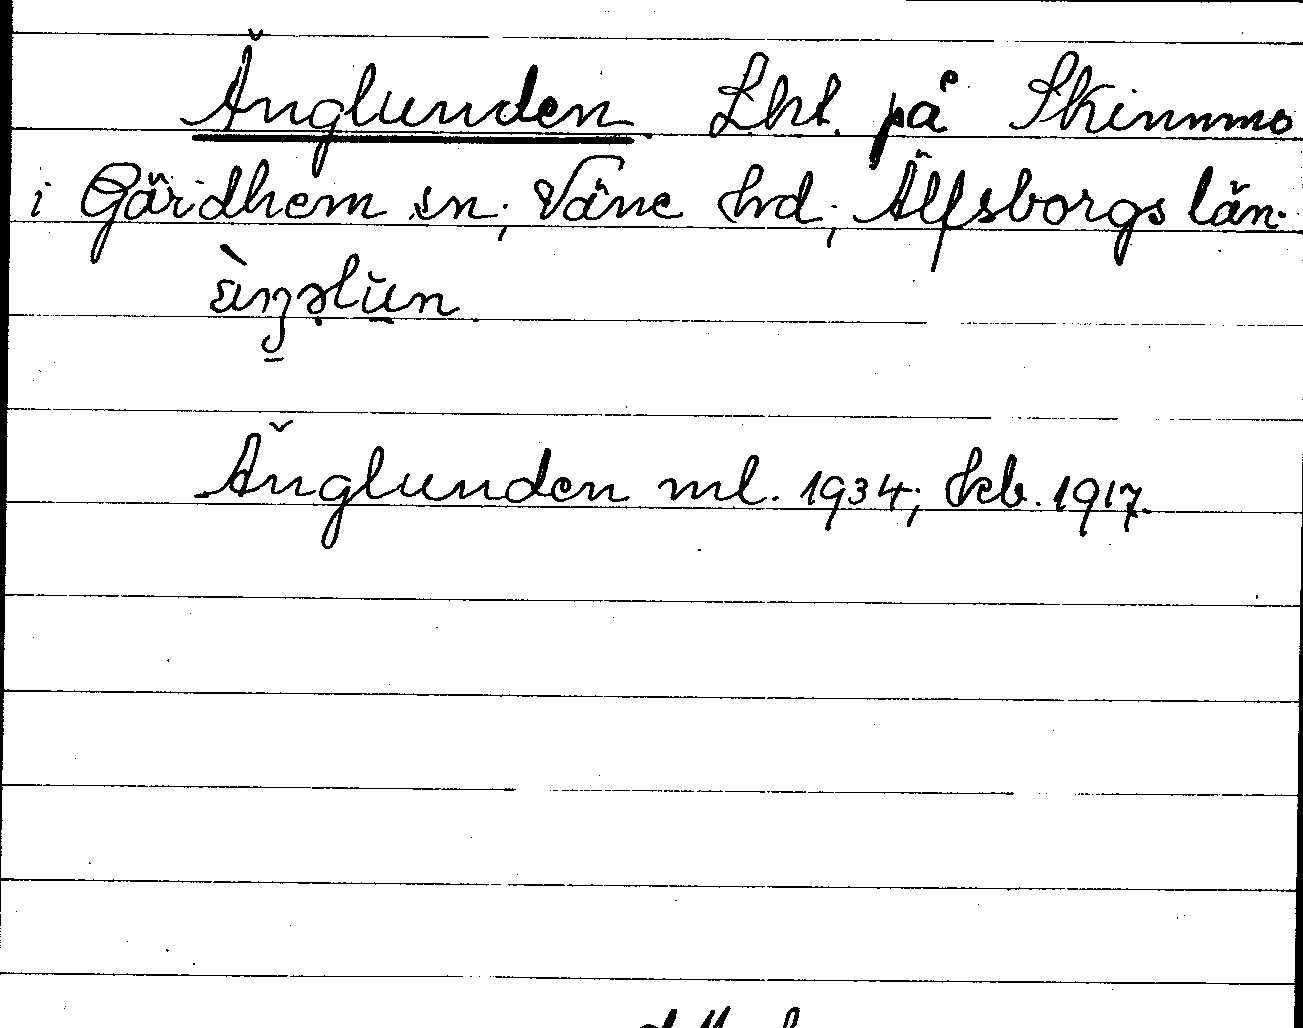 Änglunden Lht. på Skinnmo
i Gärdhem sn; Väne hd; Älfsborgs län.
Änglunden ml. 1934; Jeb. 1917.